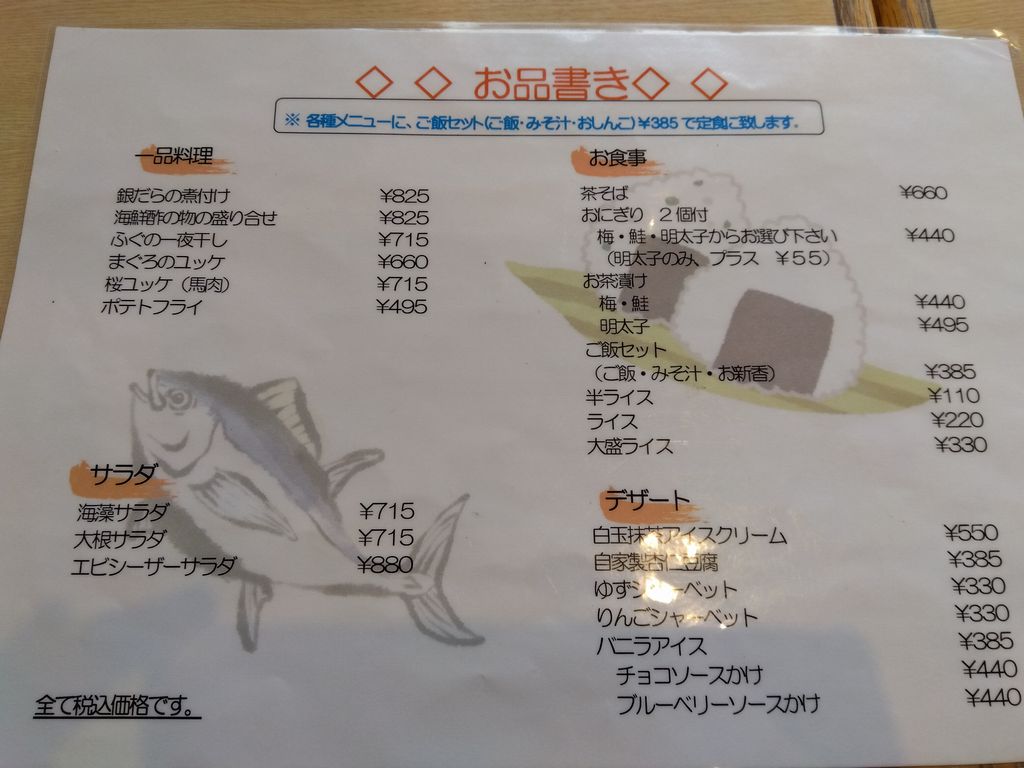 ◇ ◇ お品書き◇ ◇
※ 各種メニューに、ご飯セット(ご飯・みそ汁・おしんこ)¥385 で定食に致します。
一品料理
銀だらの煮付け ¥825
海鮮酢の物の盛り合せ ¥825
ふぐの一夜干し ¥715
まぐろのユッケ ¥660
桜ユッケ（馬肉） ¥715
ポテトフライ ¥495
サラダ
海藻サラダ ¥715
大根サラダ ¥715
エビシーザーサラダ ¥880
全て税込価格です。
お食事
茶そば ¥660
おにぎり 2個付
梅・鮭・明太子からお選び下さい ¥440
（明太子のみ、プラス ¥55）
お茶漬け
梅・鮭 ¥440
明太子 ¥495
ご飯セット
（ご飯・みそ汁・お新香） ¥385
半ライス ¥110
ライス ¥220
大盛ライス ¥330
デザート
白玉抹茶アイスクリーム ¥550
自家製杏仁豆腐 ¥385
ゆずシャーベット ¥330
りんごシャーベット ¥330
バニラアイス ¥385
チョコソースかけ ¥440
ブルーベリーソースかけ ¥440